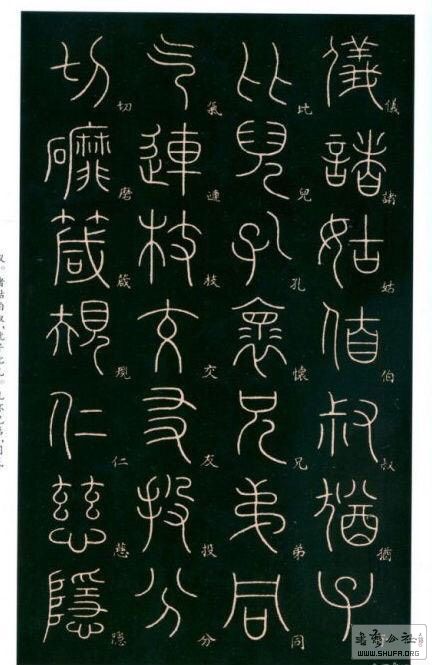 儀諸姑伯叔猶子
儀諸姑伯叔猶
比兒孔懷兄弟同
比兒孔懷兄弟同
气連枝交友投分
氣連枝交友投分
切磨箴規仁慈隱
切磨箴規仁慈隱
WWW.SHUFA.ORG